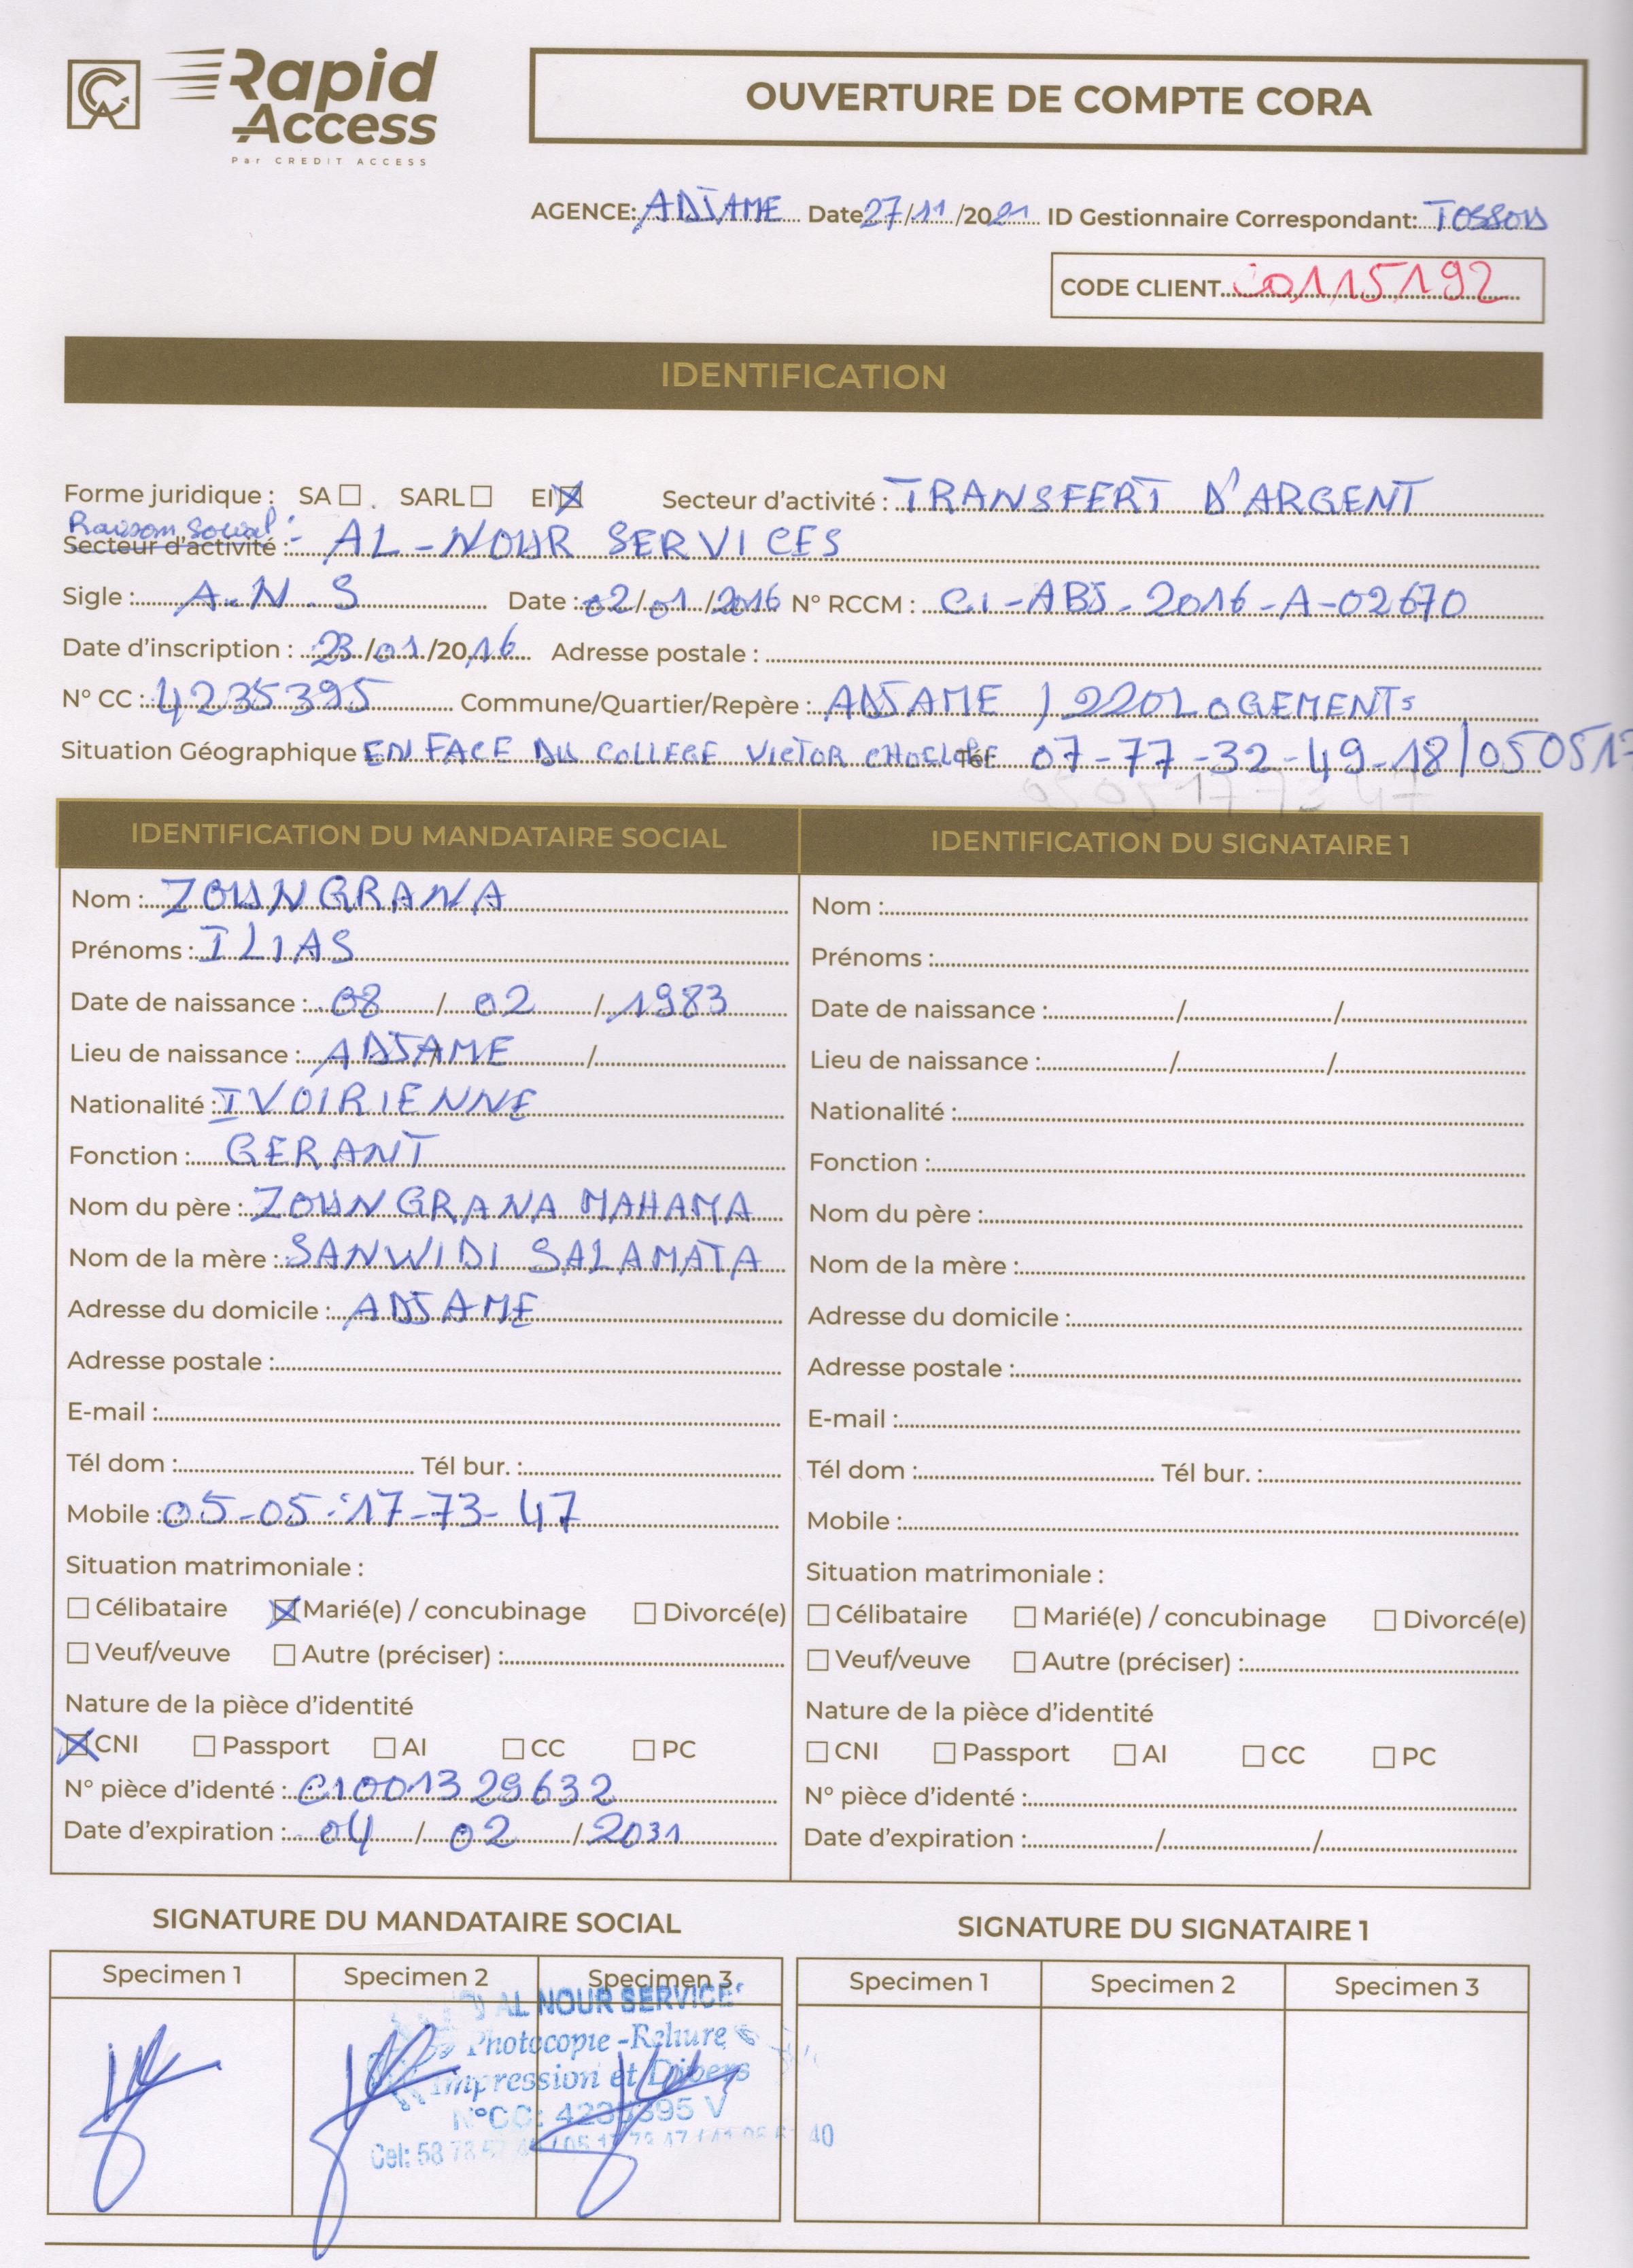 Rapid Access
Par CREDIT ACCESS
OUVERTURE DE COMPTE CORA
AGENCE: ADJAME Date 27/11/2021 ID Gestionnaire Correspondant:
CODE CLIENT 00115192
IDENTIFICATION
Forme juridique : SA ☐ . SARL ☐ EI ☒ Secteur d'activité : TRANSFERT D'ARGENT
Raison Social :
Secteur d'activité : AL-NOUR SERVICES
Sigle : A.N.S Date : 02/01/2016 N° RCCM : CI-ABJ-2016-A-02670
Date d'inscription : 23/01/2016 Adresse postale :
N° CC : 4235395 Commune/Quartier/Repère : ADJAME / 220 LOGEMENTS
Situation Géographique EN FACE DU COLLEGE VICTOR Tél: 07-77-32-49-18/050517
0505177347
IDENTIFICATION DU MANDATAIRE SOCIAL
Nom : ZOUNGRANA
Prénoms : ILIAS
Date de naissance : 08 / 02 / 1983
Lieu de naissance : ADJAME /
Nationalité : IVOIRIENNE
Fonction : GERANT
Nom du père : ZOUNGRANA MAHAMA
Nom de la mère : SANWIDI SALAMATA
Adresse du domicile : ADJAME
Adresse postale :
E-mail :
Tél dom : Tél bur. :
Mobile : 05-05-17-73-47
Situation matrimoniale :
☐ Célibataire ☒ Marié(e) / concubinage ☐ Divorcé(e)
☐ Veuf/veuve ☐ Autre (préciser) :
Nature de la pièce d'identité
☒ CNI ☐ Passport ☐ AI ☐ CC ☐ PC
N° pièce d'identé : CI001329632
Date d'expiration : 04 / 02 / 2031
IDENTIFICATION DU SIGNATAIRE 1
Nom :
Prénoms :
Date de naissance : / /
Lieu de naissance : / /
Nationalité :
Fonction :
Nom du père :
Nom de la mère :
Adresse du domicile :
Adresse postale :
E-mail :
Tél dom : Tél bur. :
Mobile :
Situation matrimoniale :
☐ Célibataire ☐ Marié(e) / concubinage ☐ Divorcé(e)
☐ Veuf/veuve ☐ Autre (préciser) :
Nature de la pièce d'identité
☐ CNI ☐ Passport ☐ AI ☐ CC ☐ PC
N° pièce d'identé :
Date d'expiration : / /
SIGNATURE DU MANDATAIRE SOCIAL
Specimen 1 Specimen 2 Specimen 3
AL NOUR SERVICE
Photocopie -Reliure
Impression et Divers
N°CC: 4235395 V
Cel: 58 78
SIGNATURE DU SIGNATAIRE 1
Specimen 1 Specimen 2 Specimen 3